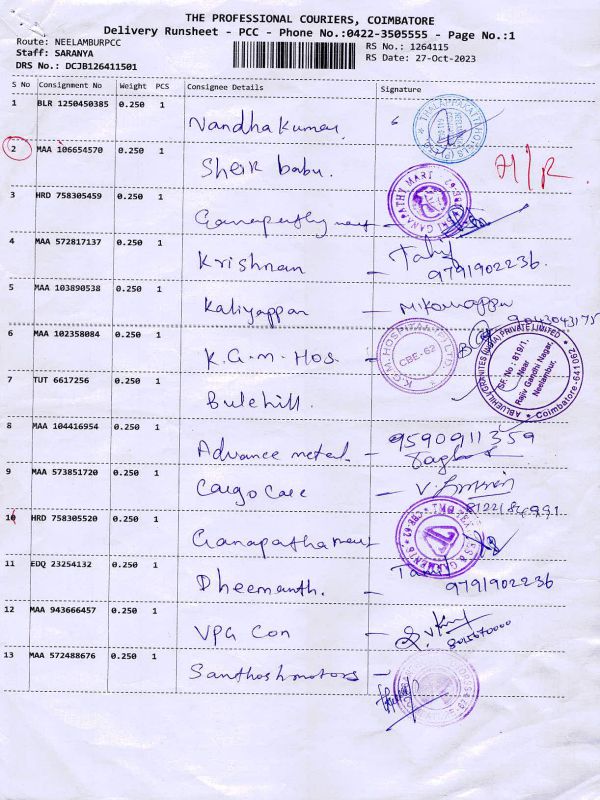 THE PROFESSIONAL COURIERS, COIMBATORE
Delivery Runsheet - PCC - Phone No.:0422-3505555 - Page No.:1
Route: NEELAMBURPCC
Staff: SARANYA
DRS No.: DCJB126411501
RS No.: 1264115
RS Date: 27-Oct-2023
S No Consignment No Weight PCS Consignee Details Signature
1 BLR 1250450385 0.250 1 Nandhakumar
2 MAA 106654570 0.250 1 Sheik babu. N/R.
3 HRD 758305459 0.250 1 Ganapathy mart
GANAPATHY MART
4 MAA 572817137 0.250 1 Krishnan - 9791902236.
5 MAA 103890538 0.250 1 Kaliyappan - 9043043175
6 MAA 102358084 0.250 1 K.G.M-Hos. -
K.G.M. HOSPITAL
CBE-62
ABLUEHILL GRANITES (INDIA) PRIVATE LIMITED
SF. No : 819/1,
Near
Rajiv Gandhi Nagar,
Neelambur,
Coimbatore-641 062
7 TUT 6617256 0.250 1 Bulehill.
8 MAA 104416954 0.250 1 Advance metal - 9590911359
9 MAA 573851720 0.250 1 Cargo Care -
10 HRD 758305520 0.250 1 Ganapatha mart
GARMENTS
CBE-62
11 EDQ 23254132 0.250 1 Dheemanth. 9791902236
12 MAA 943666457 0.250 1 VPG Con -
13 MAA 572488676 0.250 1 Santhosh motors -